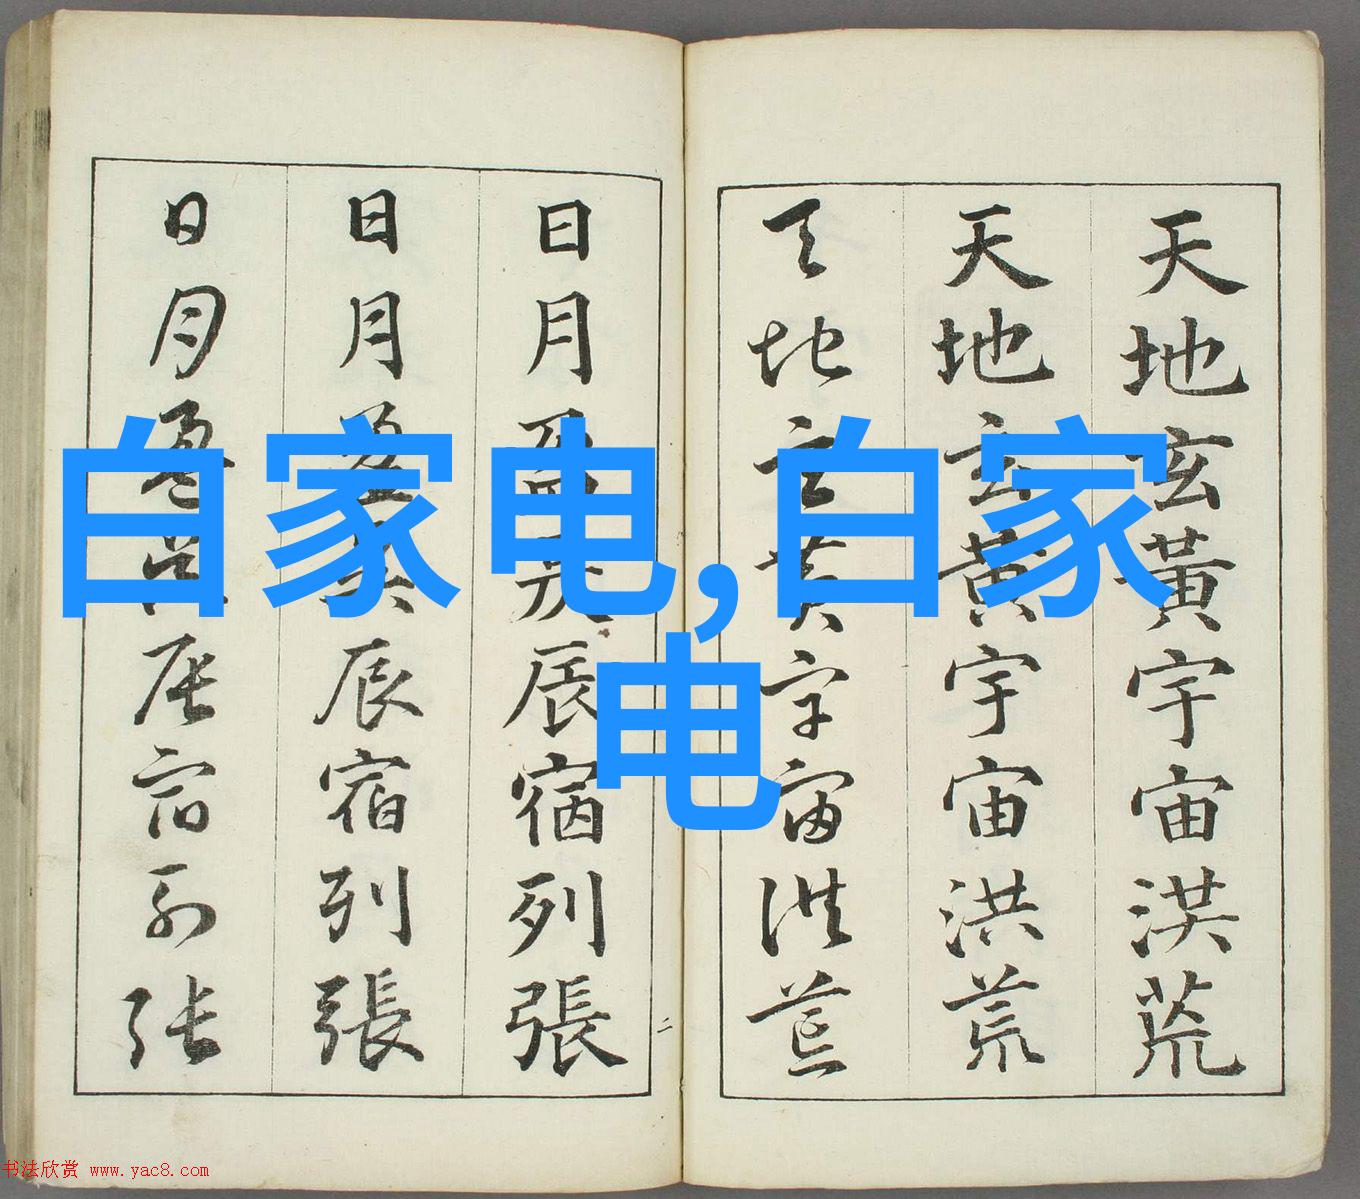 天地玄黃宇宙洪荒
天地玄黃宇宙洪荒
天地玄黃宇宙洪荒
日月盈昃辰宿列張
日月盈昃辰宿列張
日月盈昃辰宿列張
二
白家电,白家
电
书法欣赏 www.yac8.com